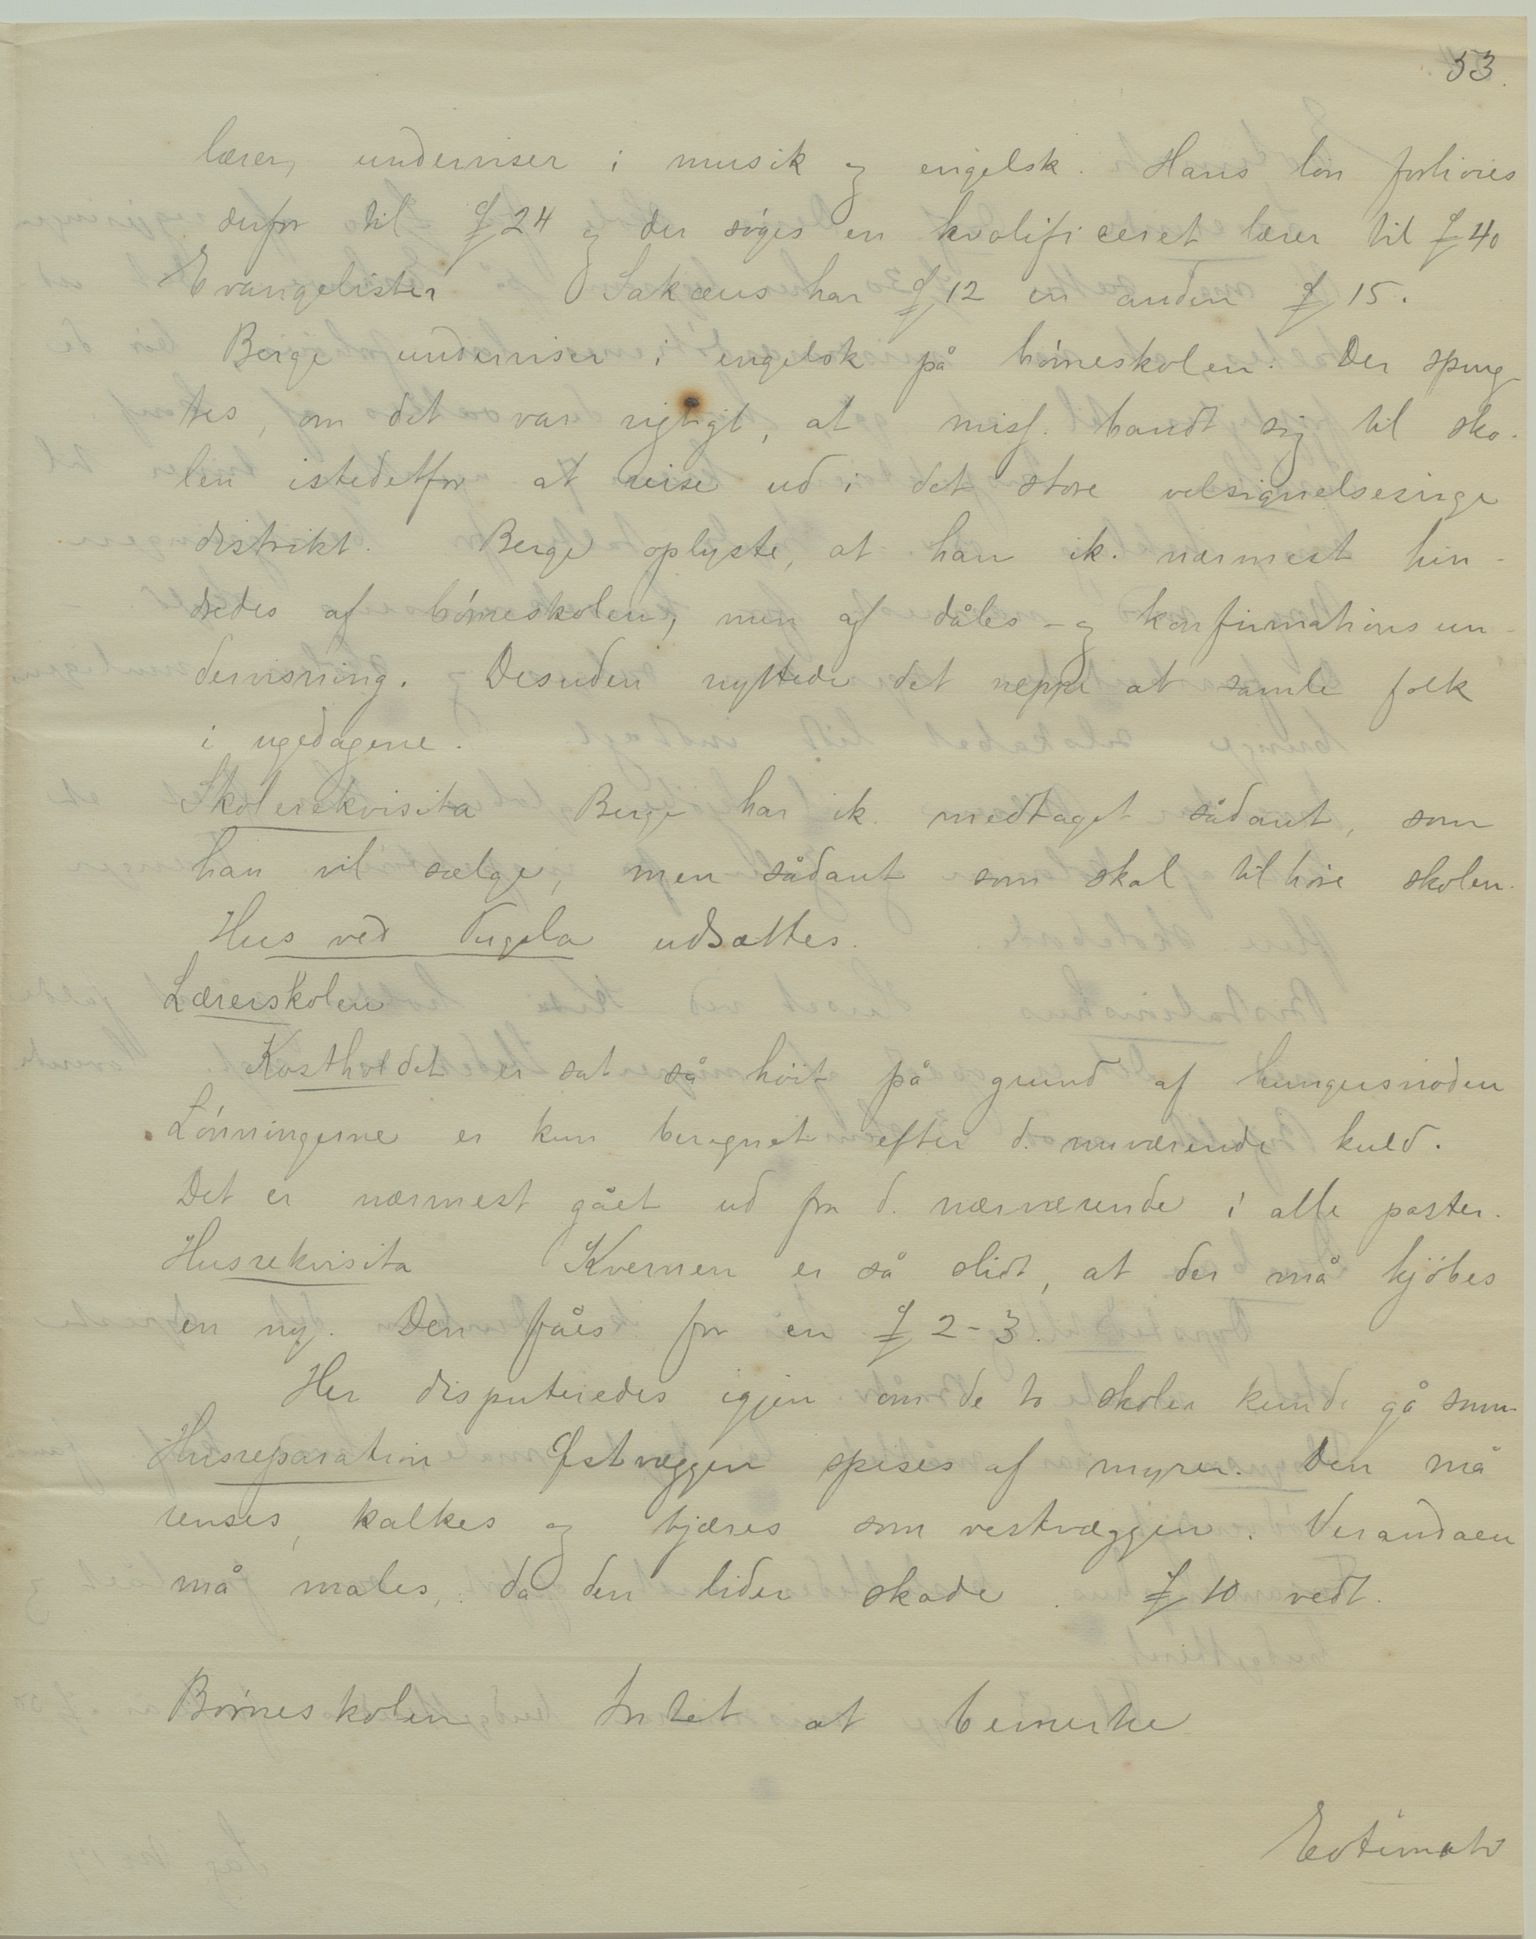 53.
lærer, underviser i musik og engelsk. Hans løn forhöies
derfor til £ 24 og der søges en kvalificeret lærer til £ 40
Evangelister Sakæus har £ 12 en anden £ 15.
Berge underviser i engelsk på börneskolen. Der spurg-
tes, om det var rigtigt, at miss. bandt sig til sko-
len istedetfor at reise ud i det store velsignelsesrige
distrikt. Berge oplyste, at han ik. nærmest hin-
dredes af börneskolen, men af dåbs- og konfirmationsun-
dervisning. Desuden nyttede det neppe at samle folk
i ugedagene.
Skolerekvisita Berge har ik. medtaget sådant, som
han vil sælge, men sådant som skal tilhöre skolen.
Hus ved Tugela udsættes.
Lærerskolen
Kostholdet er sat så höit på grund af hungersnöden
Lönningerne er kun beregnet efter d. nuværende kuld.
Det er nærmest gået ud fra d. nærværende i alle poster.
Husrekvisita Kvernen er så slidt, at der må kjöbes
en ny. Den fåes for en £ 2-3.
Her disputeredes igjen om de to skoler kunde gå sam-
Husreparation Østvæggen spises af myrer. Den må
renses, kalkes og tjæres som vestvæggen. Verandaen
må males, da den lider skade. £ 10 vedt.
Börneskolen Intet at bemerke
Estimate